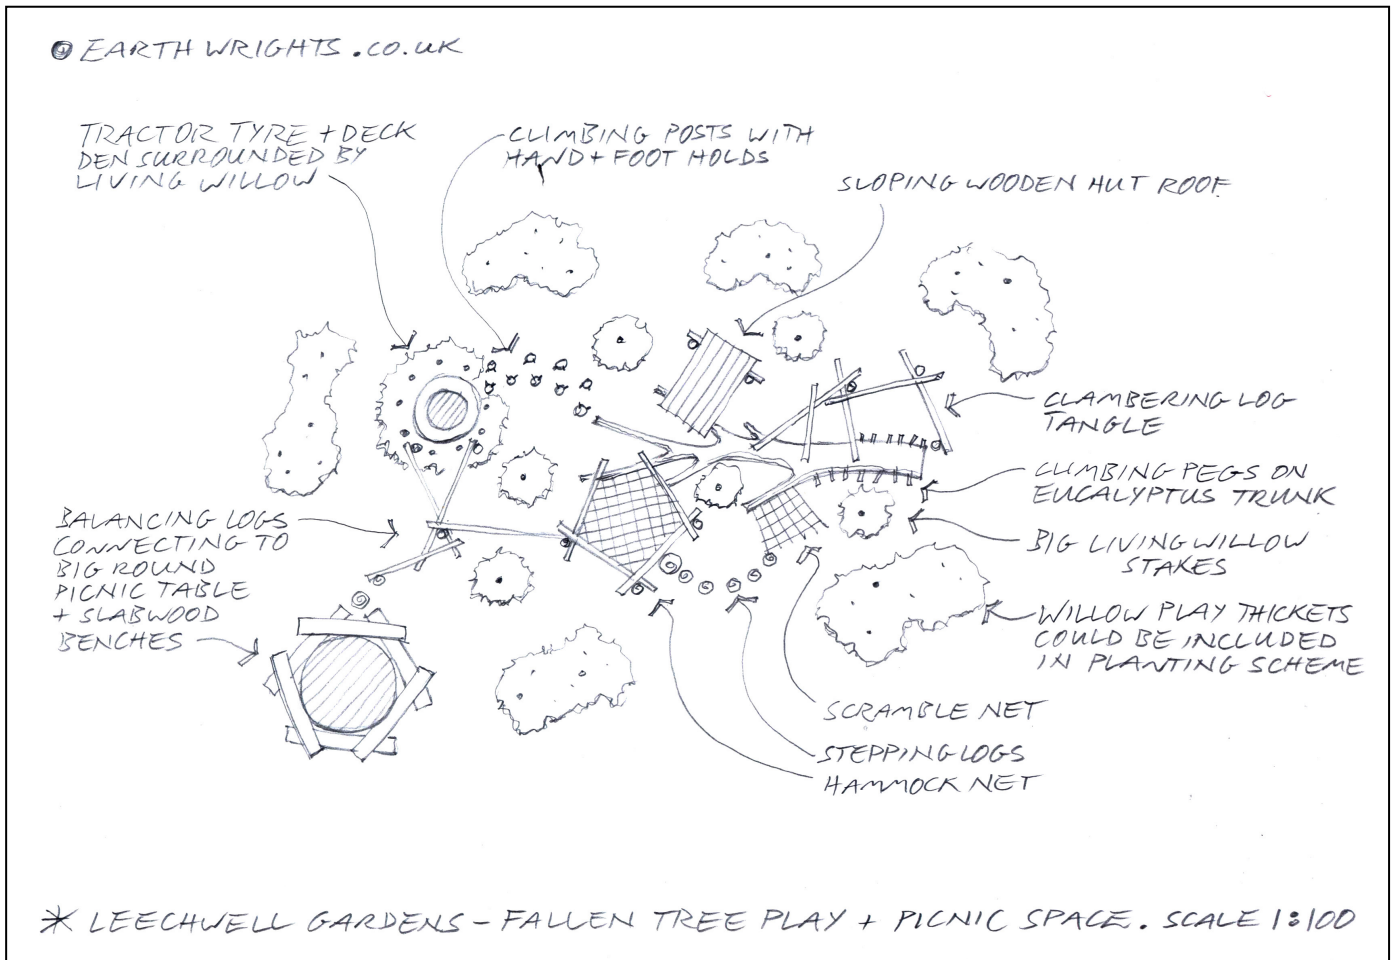 EARTHWRIGHTS.CO.UK
TRACTOR TYRE + DECK
DEN SURROUNDED BY
LIVING WILLOW
CLIMBING POSTS WITH
HAND + FOOT HOLDS
SLOPING WOODEN HUT ROOF
CLAMBERING LOG
TANGLE
CLIMBING PEGS ON
EUCALYPTUS TRUNK
BIG LIVING WILLOW
STAKES
WILLOW PLAY THICKETS
COULD BE INCLUDED
IN PLANTING SCHEME
BALANCING LOGS
CONNECTING TO
BIG ROUND
PICNIC TABLE
+ SLABWOOD
BENCHES
SCRAMBLE NET
STEPPING LOGS
HAMMOCK NET
* LEECHWELL GARDENS - FALLEN TREE PLAY + PICNIC SPACE. SCALE 1:100